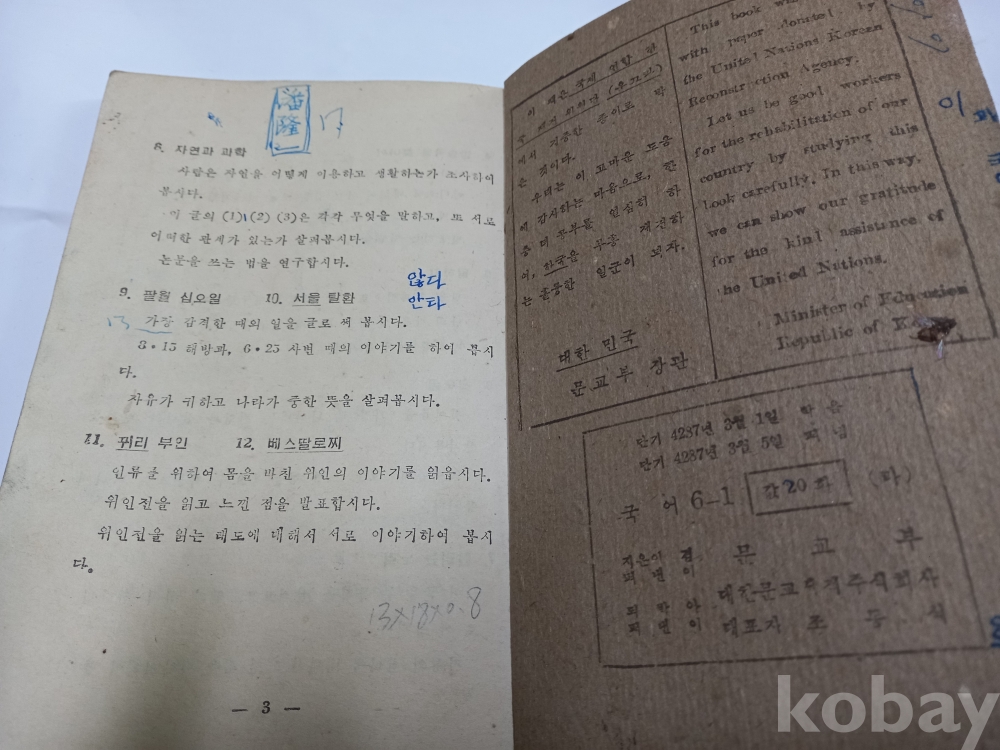 8. 자연과 과학
사람은 자연을 어떻게 이용하고 생활하는가 조사하여
봅시다.
이 글의 (1)(2)(3)은 각각 무엇을 말하고, 또 서로
어떠한 관계가 있는가 살펴봅시다.
논문을 쓰는 법을 연구합시다.
않다
안타
9. 팔월 십오일 10. 서울 탈환
13 가장 감격한 때의 일을 글로 써 봅시다.
8·15 해방과, 6·25 사변 때의 이야기를 하여 봅시
다.
자유가 귀하고 나라가 중한 뜻을 살펴봅시다.
11. 퀴리 부인 12. 베스딸로찌
인류를 위하여 몸을 바친 위인의 이야기를 읽읍시다.
위인전을 읽고 느낀 점을 발표합시다.
위인전을 읽는 태도에 대해서 서로 이야기하여 봅시
다。
13×18×0.8
— 3 —
이 책은 국제 연합 한
국 재건 위원단 (운끄라)
에서 기증한 종이로 박
은 것이다.
우리는 이 고마운 도움
에 감사하는 마음으로, 한
층 더 공부를 열심히 하
여, 한국을 부흥 재건하
는 훌륭한 일군이 되자.
대한 민국
문교부 장관
This book
with paper donated by
the United Nations Korean
Reconstruction Agency.
Let us be good workers
for the rehabilitation of our
country by studying this
book carefully. In this way,
we can show our gratitude
for the kind assistance of
the United Nations.
Minister of Education
Republic of
단기 4287년 3월 1일 박음
단기 4287년 3월 5일 펴냄
국어 6-1 값 20 환 (하)
지은이 겸 펴낸이 문교부
박아 펴낸이 대한문교서적주식회사
대표자 조 동 식
kobay